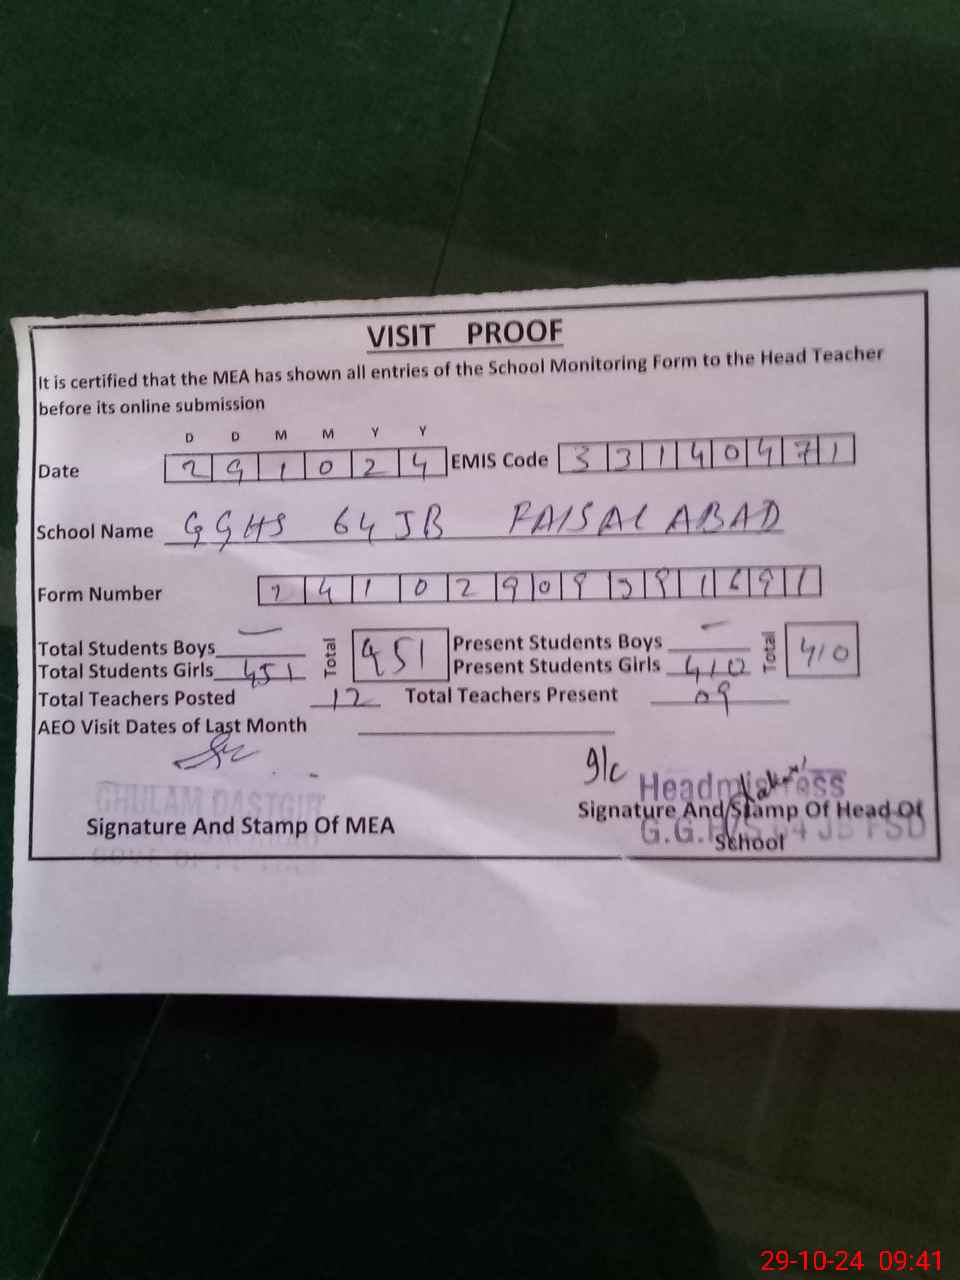 VISIT PROOF
It is certified that the MEA has shown all entries of the School Monitoring Form to the Head Teacher
before its online submission
D D M M Y Y
Date 2 9 1 0 2 4 EMIS Code 3 3 1 4 0 4 7 1
School Name GGHS 64 JB FAISALABAD
Form Number
Total Students Boys — Total 451 Present Students Boys — Total 410
Total Students Girls 451 Present Students Girls 410
Total Teachers Posted 12 Total Teachers Present 09
AEO Visit Dates of Last Month
GHULAM DASTGIR
Signature And Stamp Of MEA
I/c Headmistress
Signature And Stamp Of Head Of
School
64 JB FSD
29-10-24 09:41